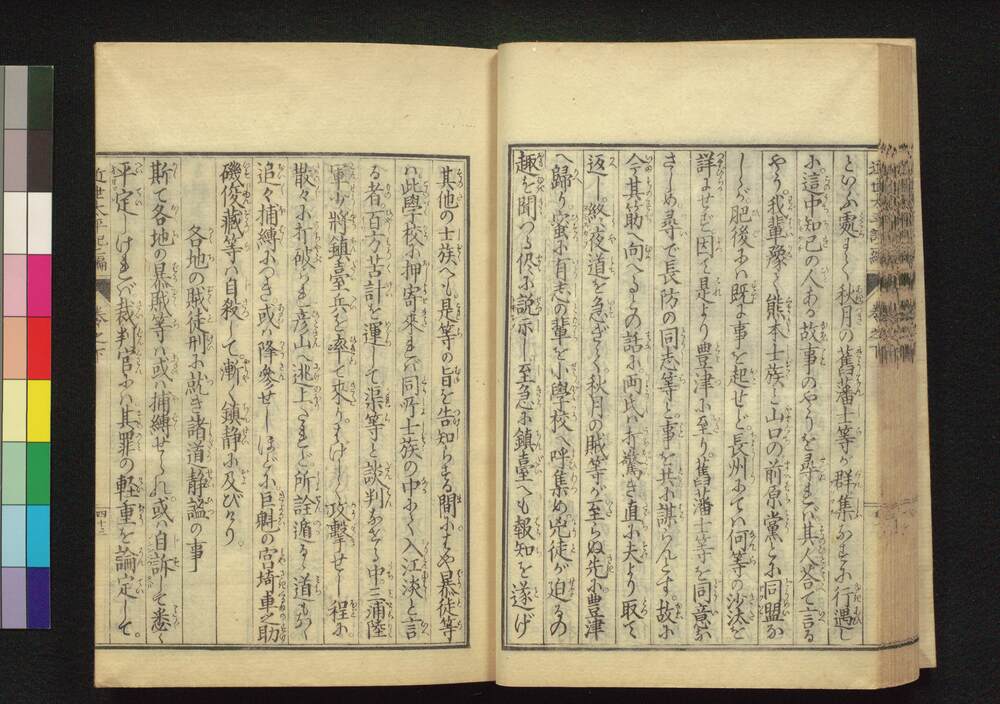 といふ處まで秋月の舊藩士等が群集なすに行遇し
に這中知己の人ある故事のやうを尋ければ其人答て言る
やう我輩豫て熊本士族と山口の前原黨とに同盟な
しゝが肥後にハ既に事を起せど長州にてハ何等の沙汰を
詳にせず因て是より豊津に至り舊藩士等を同意な
さしめ尋で長防の同志等と事を共に謀らんとす故に
今其筋へ向へるとの話に両氏ハ打驚き直に夫より取て
返し終夜道を急ぎて秋月の賊等が至らぬ先に豊津
へ歸り蜜に有志の輩を小學校へ呼集め兇徒が迫るの
趣を聞つる侭に説示し至急に鎮臺へも報知を遂げ
其他の士族へも是等の旨を告知らする間にはや暴徒等
ハ此學校に押寄來れバ同所士族の中にて入江淡と言
る者百方苦計を運して渠等と談判なすうち三浦陸
軍少將鎮臺兵を率て來りはげしく攻擊せし程に
散々に打破られ彦山へ逃上たれど所詮遁るゝ道もなく
追々捕縛につき或ハ降參せしほどに巨魁の宮埼車之助
磯俊藏等ハ自殺して漸く鎮静に及びけり
各地の賊徒刑に就き諸道静謐の事
斯て各地の暴賊等ハ或ハ捕縛せられ或ハ自訴して悉く
平定しければ裁判官にハ其罪の軽重を論定して
近世太平記二編
卷之下
四十三